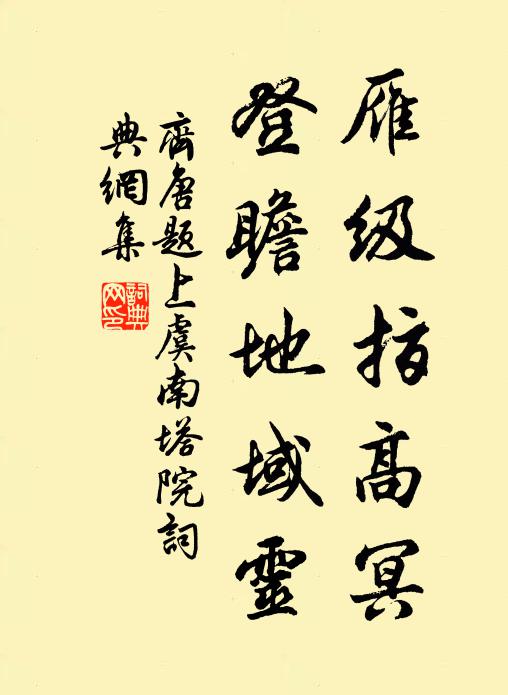 雁级指高冥
登瞻地域靈
齊唐題上虞南塔院詞
典網集
詞典
网印